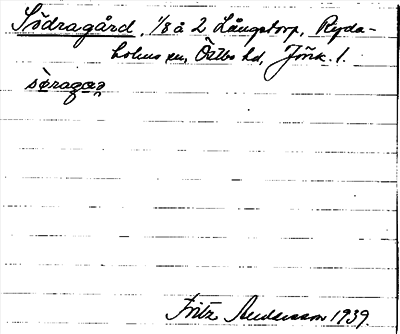 Södragård, 1/8 à 2 Långstorp, Ryda-
holms sn, Östbo hd, Jönk. l.
Fritz Andersson 1939.